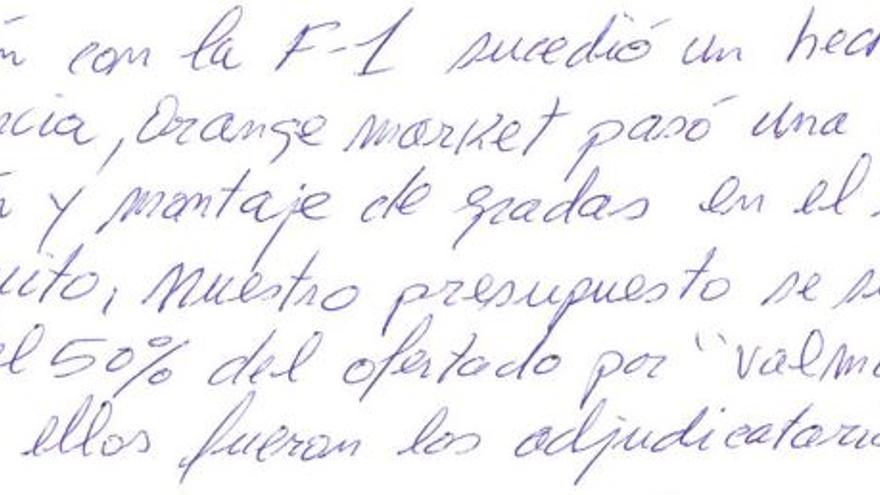 n con la F-1 sucedió un hec
ncia, Orange market pasó una
n y montaje de gradas en el
uito, Nuestro presupuesto se s
el 50% del ofertado por "valm
ellos fueron los adjudicatari